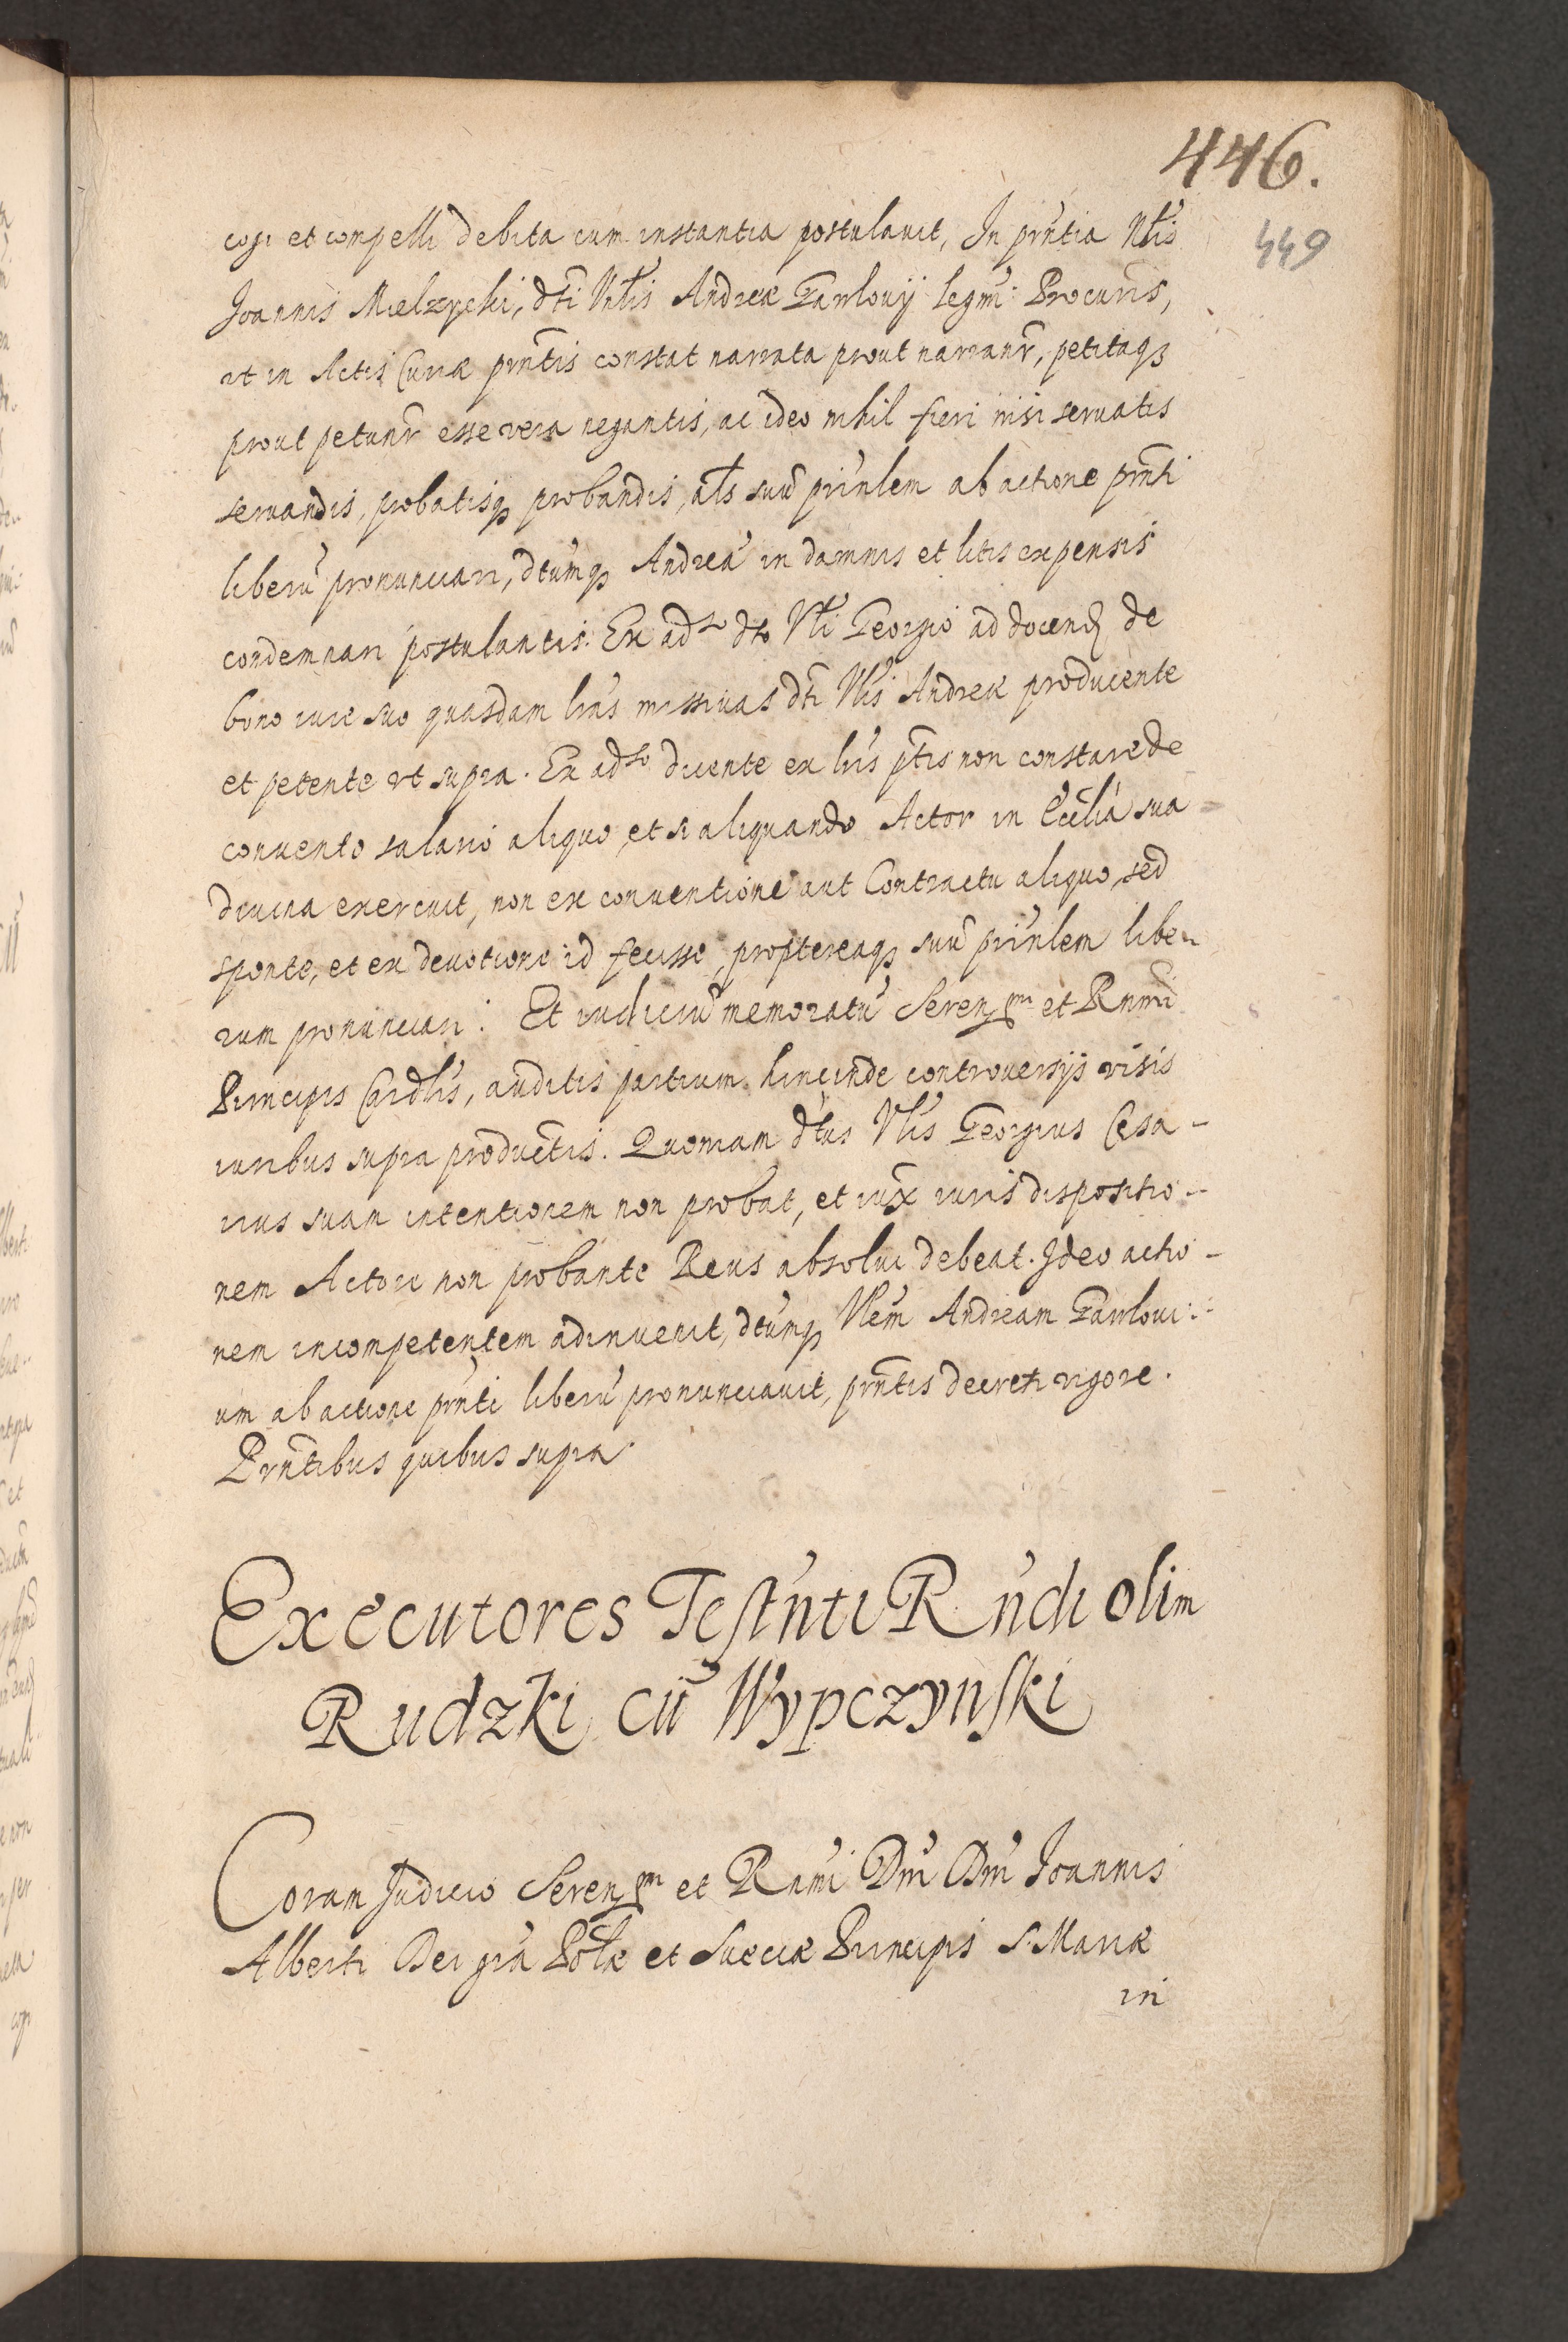 446.
449
cogi et compelli debita cum instantia postulauit, In prn̄tia Nlis
Joannis Mielzycki, dti Vnlis Andreæ Gawlouij legmi Procuris,
vt in Actis Curiæ prn̄tis constat narrata prout narranr̄, petitaqꝫ
prout petunr̄ esse vera negantis, ac ideo nihil fieri nisi seruatis
seruandis, probatisqꝫ probandis, als suū prinlem ab actione prn̄ti
liberū pronunciari, dtumqꝫ Andreā in damnis et litis expensis
condemnari postulantis. Ex adso dto Vli Georgio ad docend de
bono iure suo quasdam lras missiuas dti Vlis Andreæ producente
et petente vt supra. Ex adso dicente ex lris ptis non constare de
conuento salario aliquo, et si aliquando Actor in Ecclia sua
diuina exercuit, non ex conuentione aut Contractu aliquo, sed
sponte, et ex deuotione id fecisse, proptereaqꝫ suū prinlem libe-
rum pronunciari. Et iudiciū memoratū Serenssmi et Rnmi
Principis Cardlis, auditis partium hincinde controuersijs visis
iuribus supra productis. Quoniam dtus Vlis Georgius Cesa-
rius suam intentionem non probat, et iux iuris dispositio-
nem Actore non probante Reus absolui debeat. Ideo actio-
nem incompetentem adinuenit, dtumqꝫ Vlem Andream Gawloui-
um ab actione prn̄ti liberū pronunciauit, prn̄tis decreti vigore.
Prn̄tibus quibus supra
Executores Testn̄ti Rn̄di olim
Rudzki cū Wypczynski
Coram Judicio Serenssmi et Rnmi Dni Dni Joannis
Alberti Dei gra Polæ et Sueciæ Principis S. Mariæ
in